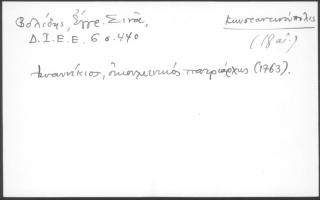 Βολίδης, Ἔγγρ. Σινᾶ,
Δ.Ι.Ε.Ε. 6 σ. 440
Κωνσταντινούπολις
(18 αἰ.)
Ἰωαννίκιος, οἰκουμενικός πατριάρχης (1763).